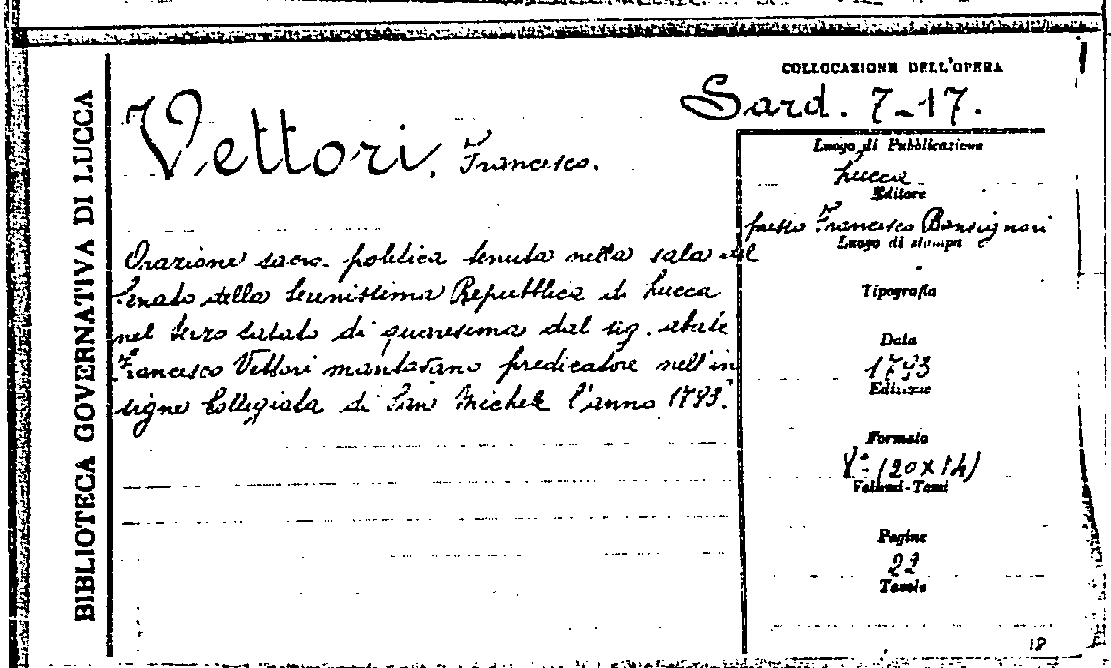 BIBLIOTECA GOVERNATIVA DI LUCCA
COLLOCAZIONE DELL'OPERA
Sard. 7-17.
Vettori, Francesco.
Orazione sacro-politica tenuta nella sala del
Senato della Serenissima Repubblica di Lucca
nel terzo sabato di quaresima dal sig. abate
Francesco Vettori mantovano predicatore nell'in
signe Collegiata di San Michele l'anno 1793.
Luogo di Pubblicazione
Lucca
Editore
presso Francesco Bonsignori
Luogo di stampa
Tipografia
Data
1793
Edizione
Formato
8° (20x14)
Volumi-Tomi
Pagine
Tavole
18